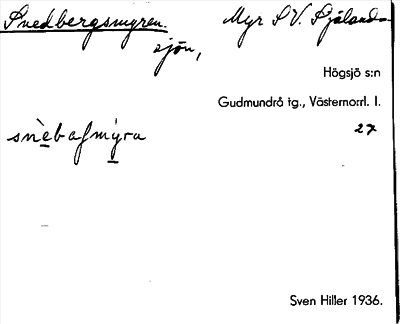 Snedbergsmyren. Myr S V. Själand-
sjön,
Högsjö s:n
Gudmundrå tg., Västernorrl. l.
27
snèbasmýra
Sven Hiller 1936.